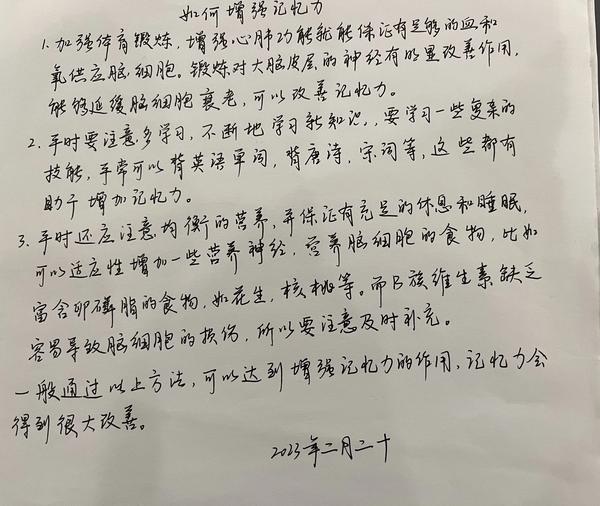 如何增强记忆力
1. 加强体育锻炼，增强心肺功能就能保证有足够的血和
氧供应脑细胞。锻炼对大脑皮层的神经有明显改善作用，
能够延缓脑细胞衰老，可以改善记忆力。
2. 平时要注意多学习，不断地学习新知识，要学习一些复杂的
技能，平常可以背英语单词，背唐诗，宋词等，这些都有
助于增加记忆力。
3. 平时还应注意均衡的营养，并保证有充足的休息和睡眠，
可以适应性增加一些营养神经，营养脑细胞的食物，比如
富含卵磷脂的食物，如花生，核桃等。而B族维生素缺乏
容易导致脑细胞的损伤，所以要注意及时补充。
一般通过以上方法，可以达到增强记忆力的作用，记忆力会
得到很大改善。
2023年二月二十